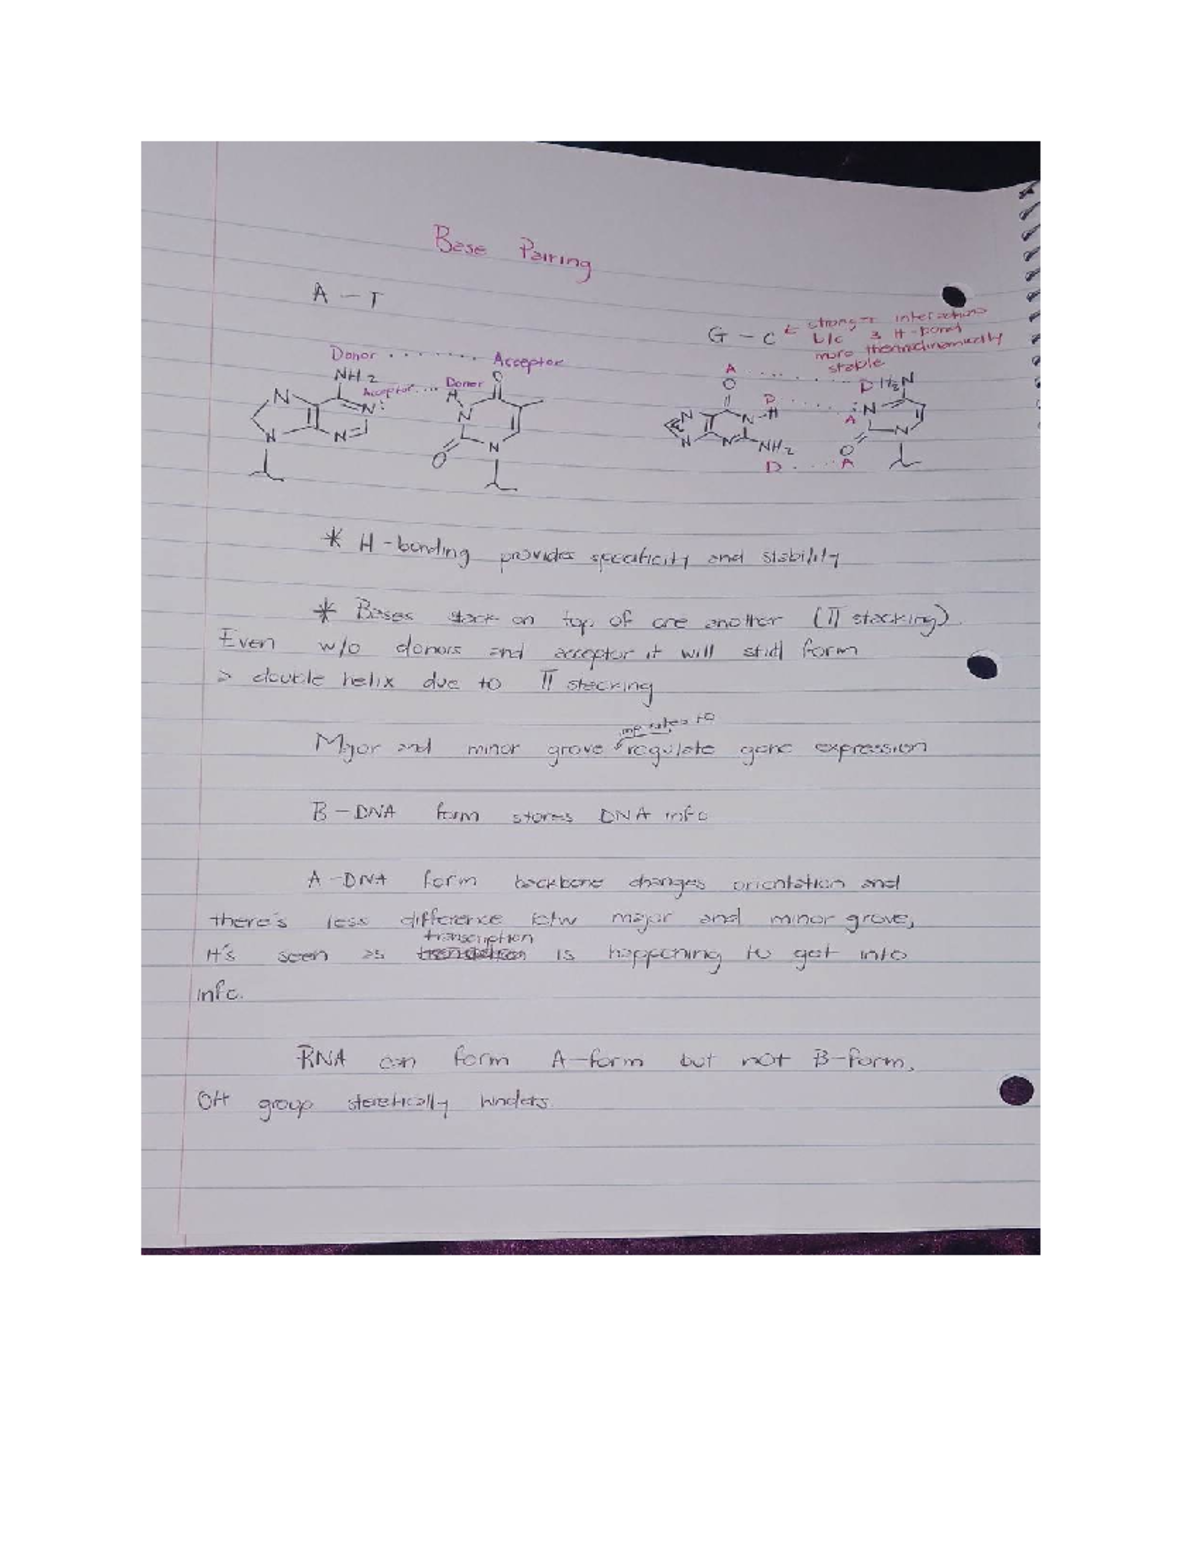 Base Pairing
A - T
G - C ← stronger interactions
b/c 3 H-bond
more thermodinamically
stable
Donor ........ Acceptor
NH2 O
Acceptor ... Donor
H
N N: N
N N O N
A ........ D H2N
O
N N-H D ...... :N
A
N N NH2 O N
D .... A
* H-bonding provides specificity and stability
* Bases stack on top of one another (π stacking).
Even w/o donors and acceptor it will still form
> double helix due to π stacking
Major and minor grove regulate gene expression
B-DNA form stores DNA info
A-DNA form backbone changes orientation and
there's less difference btw major and minor grove,
transcription
It's seen as is happening to get into
info.
RNA can form A-form but not B-form,
OH group steretically hinders.